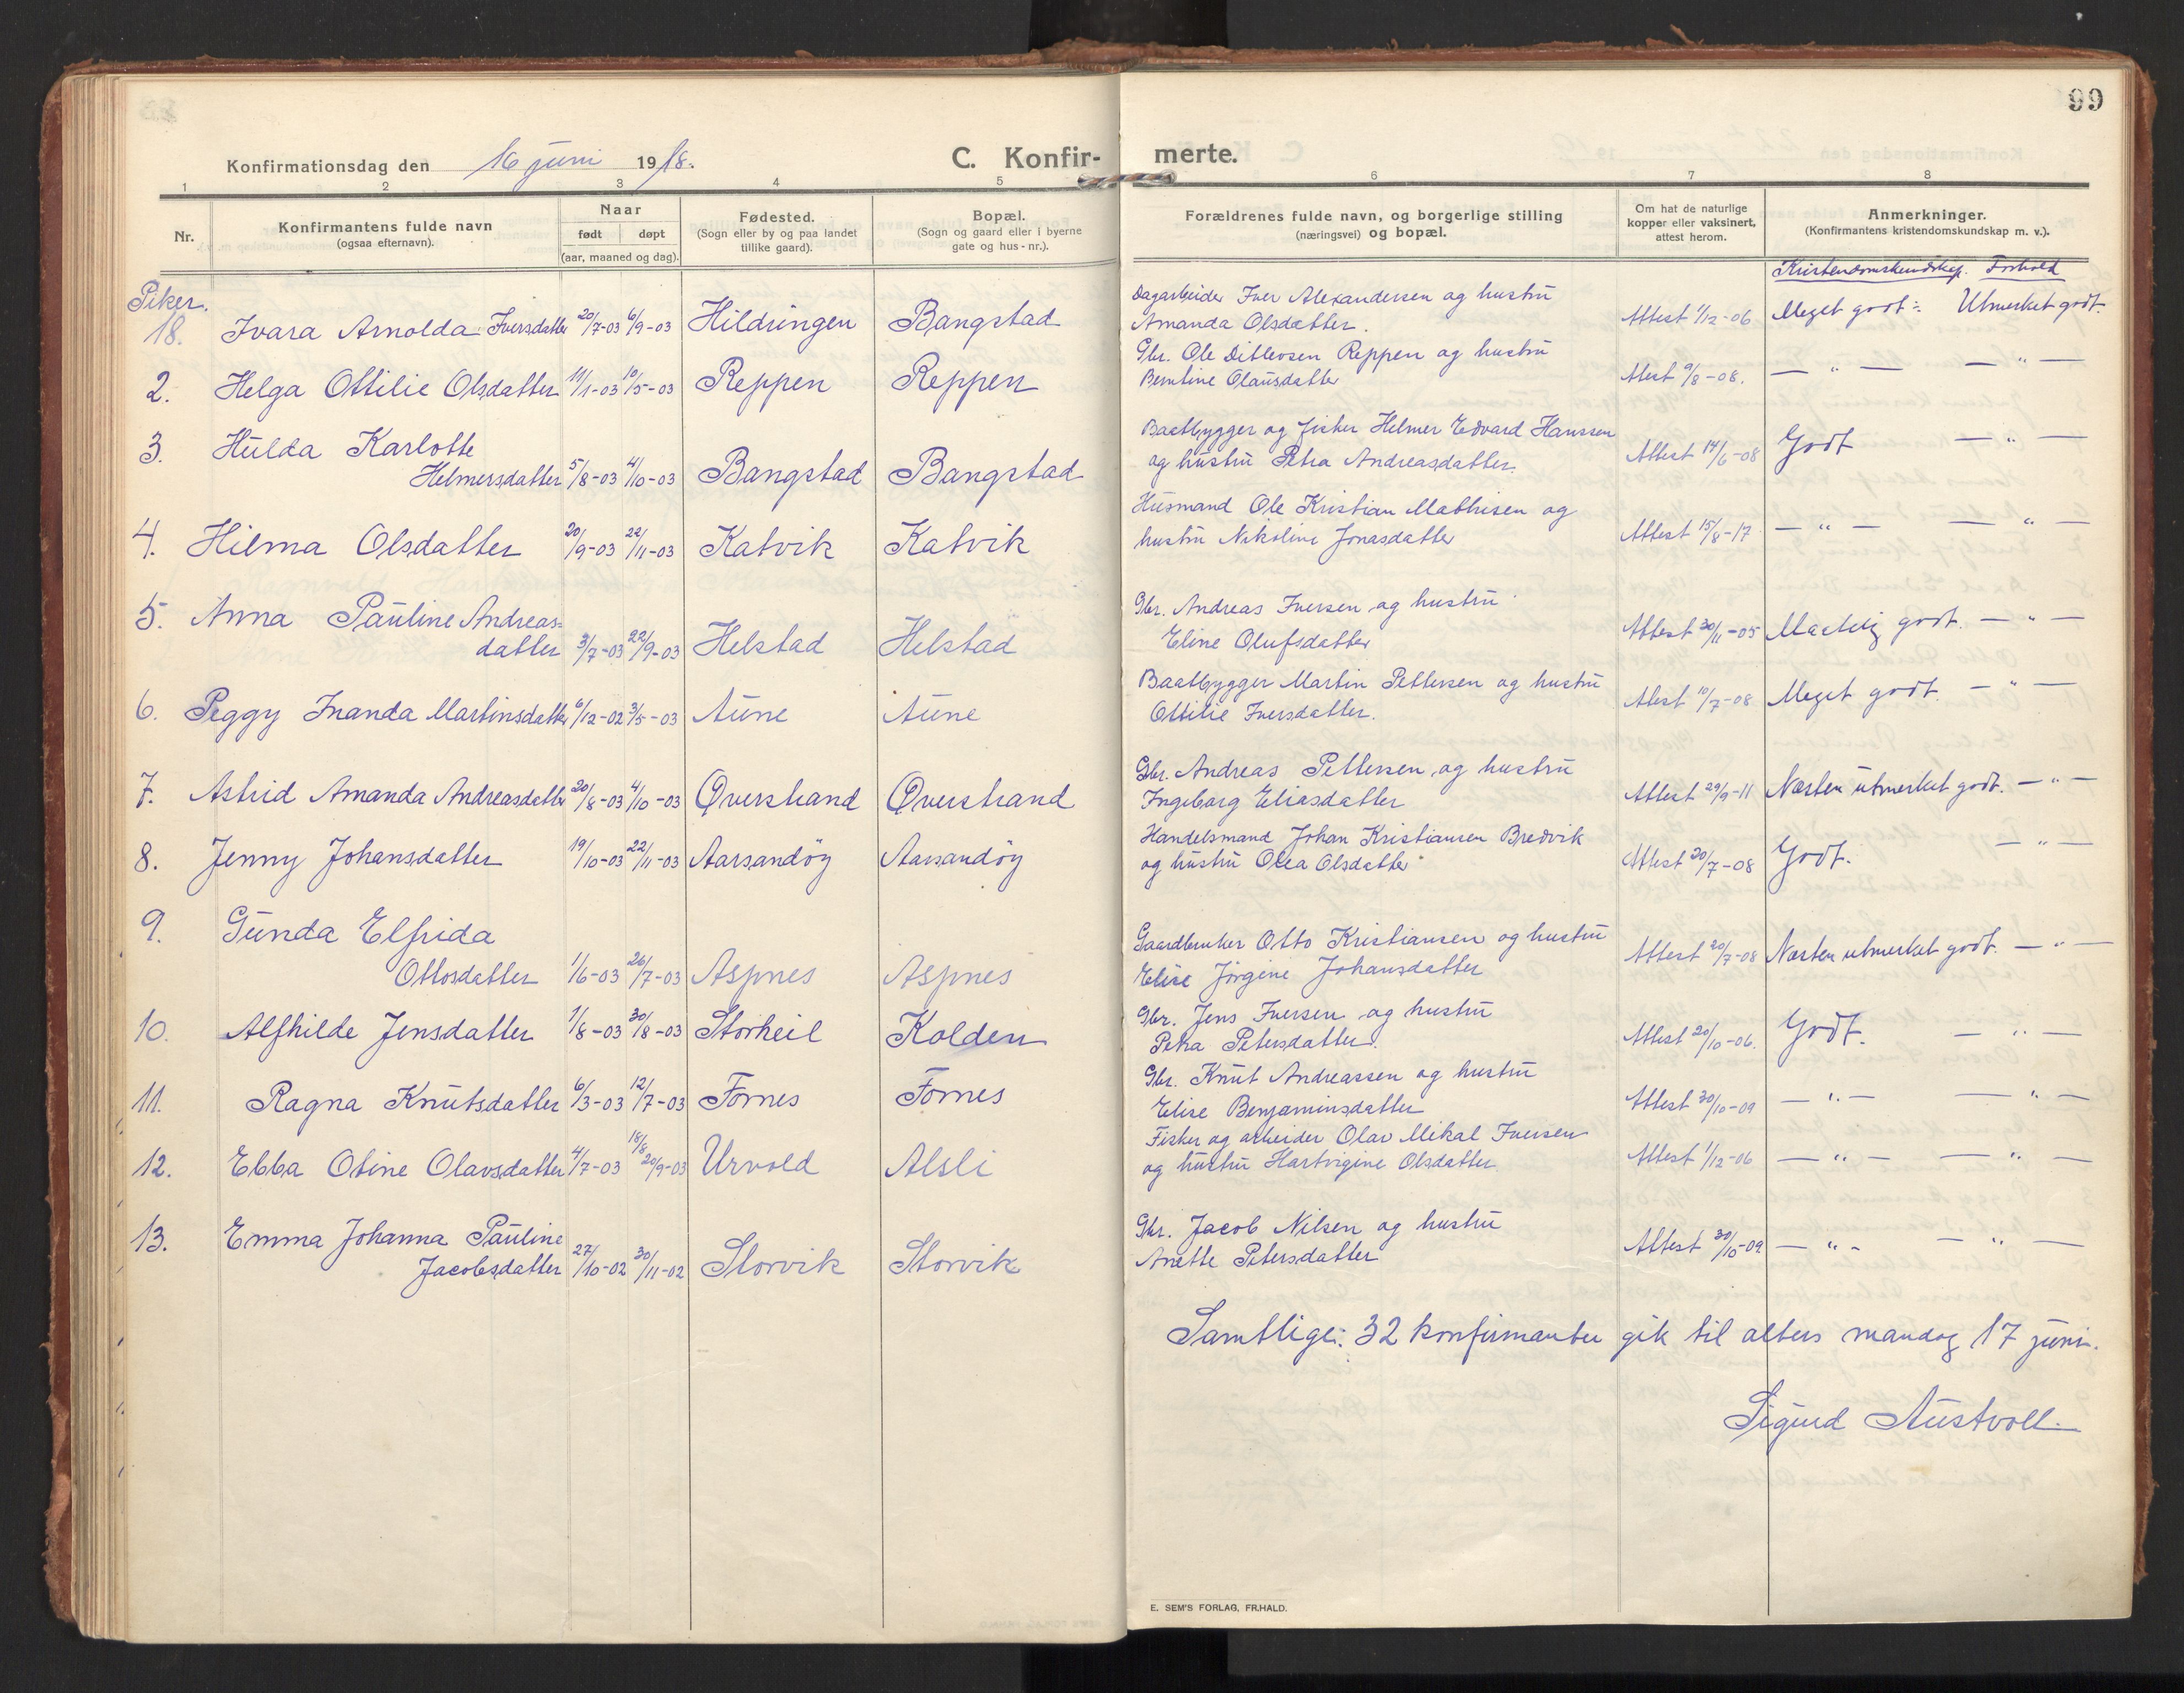 99
Konfirmationsdag den 16 juni 1918.
C. Konfirmerte.
1 2 3 4 5 6 7 8
Nr.
Konfirmantens fulde navn
(ogsaa efternavn).
Naar
født døpt
(aar, maaned og dag).
Fødested.
(Sogn eller by og paa landet
tillike gaard).
Bopæl.
(Sogn og gaard eller i byerne
gate og hus-nr.).
Forældrenes fulde navn, og borgerlige stilling
(næringsvei) og bopæl.
Om hat de naturlige
kopper eller vaksinert,
attest herom.
Anmerkninger.
(Konfirmantens kristendomskundskap m. v.).
Kristendomskundskap. Forhold
Piker.
18. Ivara Arnolda Iversdatter 20/7-03 6/9-03 Hildringen Bangstad
Dagarbeider Iver Alexandersen og hustru
Amanda Olsdatter.
Attest 1/12-06 Meget godt: Utmerket godt.
2. Helga Ottilie Olsdatter 11/1-03 10/5-03 Reppen Reppen
Gbr. Ole Ditlevsen Reppen og hustru
Berntine Olausdatter
Attest 9/8-08. — " — — " —
3. Hulda Karlotte
Helmersdatter 5/8-03 4/10-03 Bangstad Bangstad
Baatbygger og fisker Helmer Edvard Hanssen
og hustru Petra Andreasdatter.
Attest 14/6-08 Godt — " —
4. Hilma Olsdatter 20/9-03 22/11-03 Katvik Katvik
Husmand Ole Kristian Mathisen og
hustru Nikoline Jonasdatter
Attest 15/8-17 — " — — " —
5. Anna Pauline Andreas-
datter 3/7-03 22/9-03 Helstad Helstad
Gbr. Andreas Iversen og hustru
Eline Olufsdatter
Attest 30/11-05 Maadelig godt. — " —
6. Peggy Inanda Martinsdatter 6/12-02 3/5-03 Aune Aune
Baatbygger Martin Pettersen og hustru
Ottilie Iversdatter.
Attest 10/7-08 Meget godt. — " —
7. Astrid Amanda Andreasdatter 20/8-03 4/10-03 Qverstrand Qverstrand
Gbr. Andreas Pettersen og hustru
Ingeborg Eliasdatter
Attest 29/9-11 Næsten utmerket godt. — " —
8. Jenny Johansdatter 19/10-03 22/11-03 Aarsandöy Aarsandöy
Handelsmand Johan Kristiansen Bredvik
og hustru Olea Olsdatter
Attest 20/7-08 Godt. — " —
9. Gunda Elfrida
Ottosdatter 1/6-03 26/7-03 Aspnes Aspnes
Gaardbruker Otto Kristiansen og hustru
Elise Jörgine Johansdatter
Attest 20/7-08 Næsten utmerket godt. — " —
10. Alfhilde Jensdatter 1/8-03 30/8-03 Storheil Kolden
Gbr. Jens Iversen og hustru
Petra Petersdatter.
Attest 20/10-06. Godt. — " —
11. Ragna Knutsdatter 6/3-03 12/7-03 Fornes Fornes
Gbr. Knut Andreassen og hustru
Elise Benjaminsdatter
Attest 30/10-09 — " — — " —
12. Ebba Otine Olavsdatter 4/7-03 18/8 20/9-03 Urvold Alsli
Fisker og arbeider Olav Mikal Iversen
og hustru Hartvigine Olsdatter
Attest 1/12-06 — " — — " —
13. Emma Johanna Pauline
Jacobsdatter 27/10-02 30/11-02 Storvik Storvik
Gbr. Jacob Nilsen og hustru
Anette Petersdatter
Attest 30/10-09 — " — — " —
Samtlige: 32 konfirmanter gik til alters mandag 17 juni.
Sigurd Austvoll.
E. SEM'S FORLAG, FR.HALD.